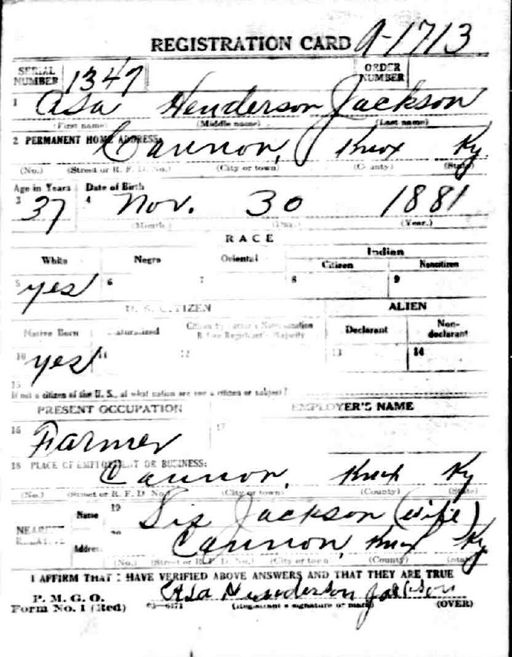 REGISTRATION CARD A-1713
SERIAL NUMBER 1347 ORDER NUMBER
1 Asa Henderson Jackson
(First name) (Middle name) (Last name)
2 PERMANENT HOME ADDRESS:
Cannon, Knox Ky.
(No.) (Street or R. F. D. No.) (City or town) (County) (State)
Age in Years Date of Birth
3 37 4 Nov. 30 1881
(Month) (Day) (Year.)
RACE
White Negro Oriental Indian
Citizen Noncitizen
5 yes 6 7 8 9
U. S. CITIZEN ALIEN
Native Born Naturalized Citizen by Father's Naturalization Before Registrant's Majority Declarant Non-declarant
10 yes 11 12 13 14
15
If not a citizen of the U. S., of what nation are you a citizen or subject?
PRESENT OCCUPATION EMPLOYER'S NAME
16 Farmer 17
18 PLACE OF EMPLOYMENT OR BUSINESS:
Cannon, Knox Ky
(No.) (Street or R. F. D. No.) (City or town) (County) (State)
NEAREST RELATIVE Name 19 Sis Jackson (wife)
Address 20 Cannon, Knox Ky
(No.) (Street or R. F. D. No.) (City or town) (County) (State)
I AFFIRM THAT I HAVE VERIFIED ABOVE ANSWERS AND THAT THEY ARE TRUE
P. M. G. O.
Form No. 1 (Red) 03-6171 Asa Henderson Jackson
(Registrant's signature or mark) (OVER)